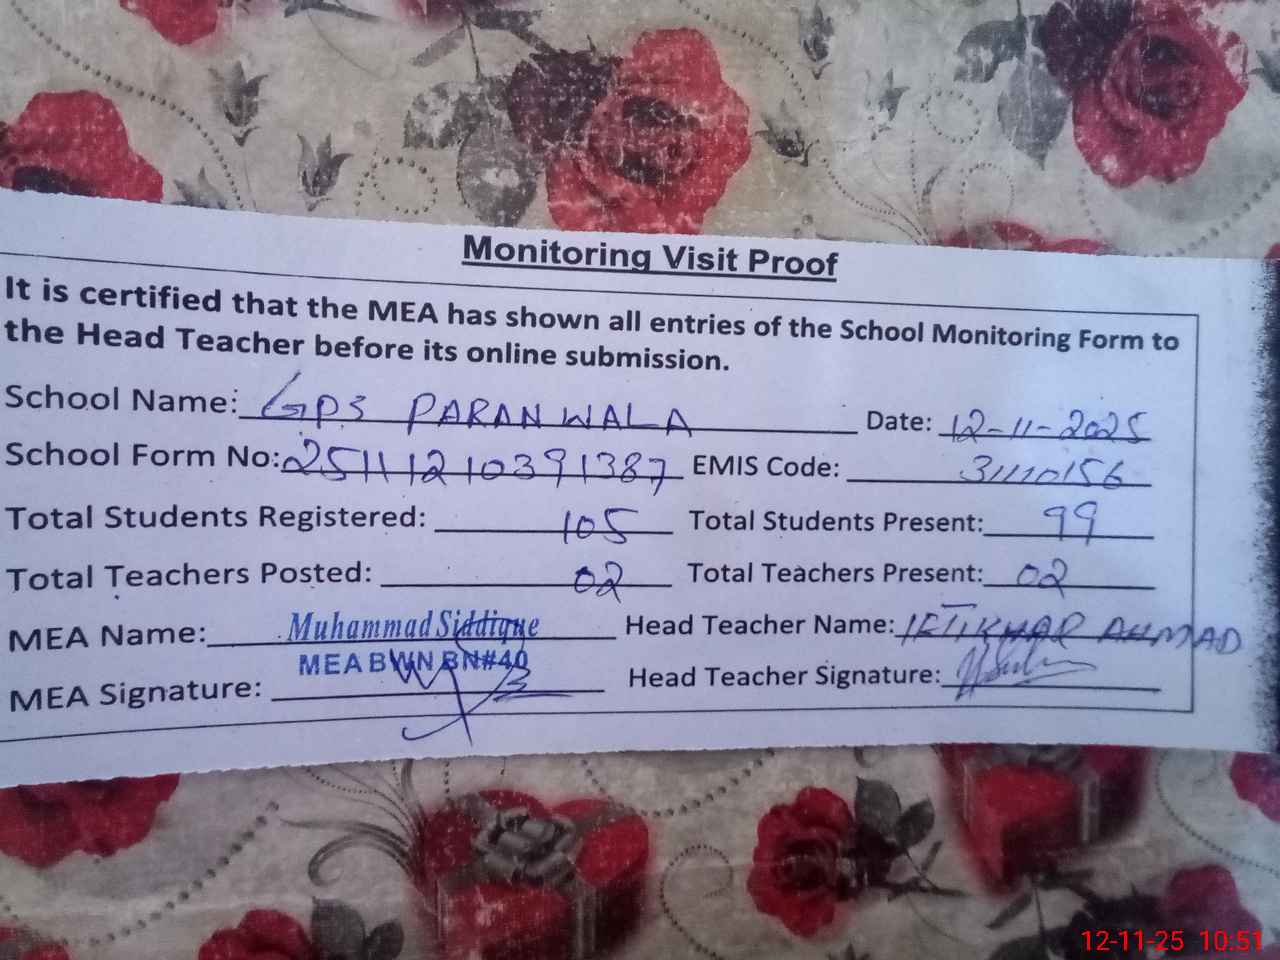 Monitoring Visit Proof
It is certified that the MEA has shown all entries of the School Monitoring Form to
the Head Teacher before its online submission.
School Name: GPS PARAN WALA Date: 12-11-2025
School Form No: 25111210391387 EMIS Code: 31110156
Total Students Registered: 105 Total Students Present: 99
Total Teachers Posted: 02 Total Teachers Present: 02
MEA Name: Muhammad Siddique Head Teacher Name: IFTIKHAR AHMAD
MEA BWN BN#40
MEA Signature: Head Teacher Signature:
12-11-25 10:51